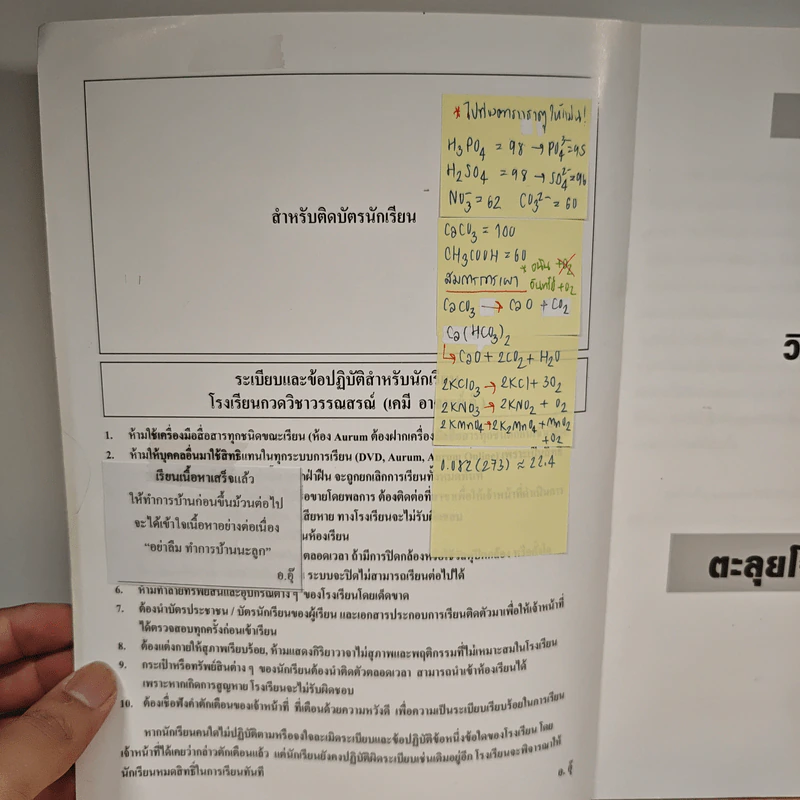 สำหรับติดบัตรนักเรียน
* ไปท่องตารางธาตุ ให้แม่น!
H₃PO₄ = 98 → PO₄³⁻ = 95
H₂SO₄ = 98 → SO₄²⁻ = 96
NO₃⁻ = 62 CO₃²⁻ = 60
CaCO₃ = 100
CH₃COOH = 60
สมการการเผา
+O₂
+O₂
CaCO₃ → CaO + CO₂
Ca(HCO₃)₂
↳ CaO + 2CO₂ + H₂O
2KClO₃ → 2KCl + 3O₂
2KNO₃ → 2KNO₂ + O₂
2KMnO₄ → 2K₂MnO₄ + MnO₂
+ O₂
0.082 (273) ≈ 22.4
ระเบียบและข้อปฏิบัติสำหรับ
โรงเรียนกวดวิชาวรรณสรณ์ (เคมี
1. ห้ามใช้เครื่องมือสื่อสารทุกชนิดขณะเรียน (ห้อง Aurum ต้องฝากเครื่อง
2. ห้ามให้บุคคลอื่นมาใช้สิทธิแทนในทุกระบบการเรียน (DVD, Aurum,
ฝ่าฝืน จะถูกยกเลิกการเรียน
โดยพลการ ต้องติดต่อที่
เสียหาย ทางโรงเรียนจะไม่
ห้องเรียน
ตลอดเวลา ถ้ามีการปิดกล้อง
ระบบจะปิดไม่สามารถเรียนต่อไปได้
เรียนเนื้อหาเสร็จแล้ว
ให้ทำการบ้านก่อนขึ้นม้วนต่อไป
จะได้เข้าใจเนื้อหาอย่างต่อเนื่อง
“อย่าลืม ทำการบ้านนะลูก”
อ.อุ๊
6. ห้ามทำลายทรัพย์สินและอุปกรณ์ต่าง ๆ ของโรงเรียนโดยเด็ดขาด
7. ต้องนำบัตรประชาชน / บัตรนักเรียนของผู้เรียน และเอกสารประกอบการเรียนติดตัวมาเพื่อให้เจ้าหน้าที่
ได้ตรวจสอบทุกครั้งก่อนเข้าเรียน
8. ต้องแต่งกายให้สุภาพเรียบร้อย, ห้ามแสดงกิริยาวาจาไม่สุภาพและพฤติกรรมที่ไม่เหมาะสมในโรงเรียน
9. กระเป๋าหรือทรัพย์สินต่าง ๆ ของนักเรียนต้องนำติดตัวตลอดเวลา สามารถนำเข้าห้องเรียนได้
เพราะหากเกิดการสูญหาย โรงเรียนจะไม่รับผิดชอบ
10. ต้องเชื่อฟังคำตักเตือนของเจ้าหน้าที่ ที่เตือนด้วยความหวังดี เพื่อความเป็นระเบียบเรียบร้อยในการเรียน
หากนักเรียนคนใดไม่ปฏิบัติตามหรือจงใจละเมิดระเบียบและข้อปฏิบัติข้อหนึ่งข้อใดของโรงเรียน โดย
เจ้าหน้าที่ได้เคยว่ากล่าวตักเตือนแล้ว แต่นักเรียนยังคงปฏิบัติผิดระเบียบเช่นเดิมอยู่อีก โรงเรียนจะพิจารณาให้
นักเรียนหมดสิทธิ์ในการเรียนทันที
อ. อุ๊
วิ
ตะลุยโ